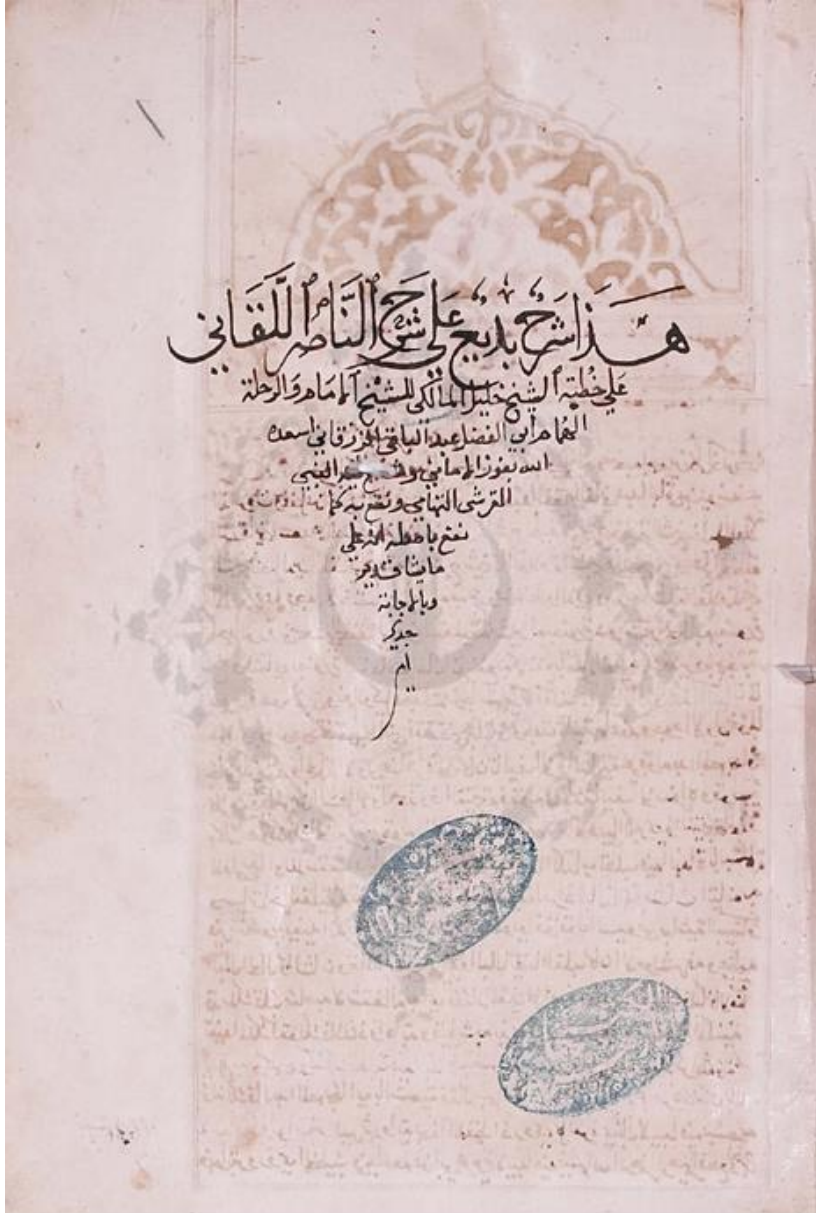 هَذَا شرحٌ بديعٌ عَلَي شَرْحِ النَّاصِر اللَّقَاني
عَلي خُطبة الشيخ خليل المالكي للشيخ الامام والرحلة
الهمام ابي الفضل عبد الباقي الزرقاني اسعده
الله بفوز الاماني النبي
القرشي التهامي ونفع به كما
نفع باصله انه علي
ما يشا قدير
وبالاجابة
جدير
ام